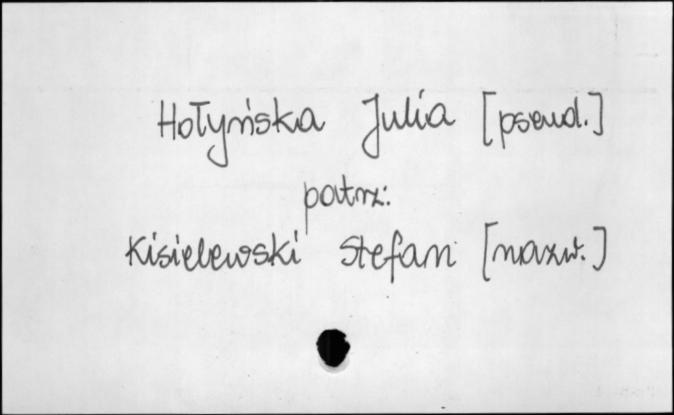 Hołyńska Julia [pseud.]
patrz:
Kisielewski Stefan [nazw.]